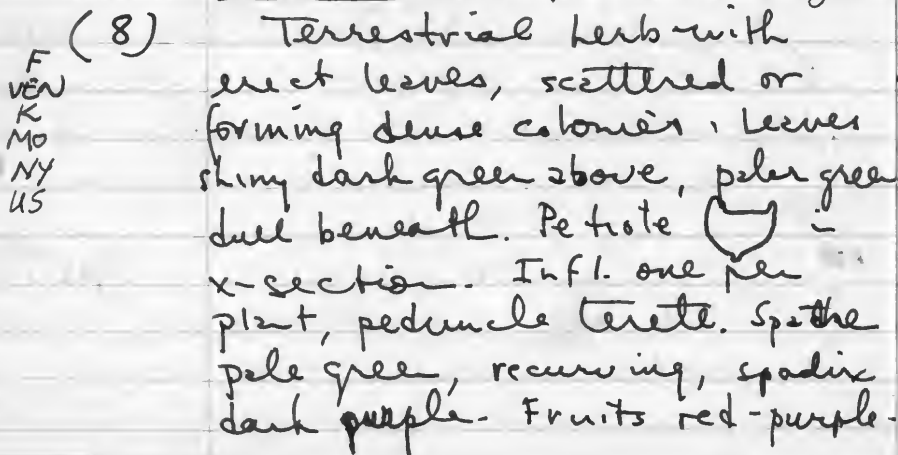 (8) Terrestrial herb with
erect leaves, scattered or
forming dense colonies, leaves
shiny dark green above, paler green
dull beneath. Petiole in
x-section. Infl. one per
plant, peduncle terete. Spathe
pale green, recurving, spadix
dark purple. Fruits red-purple.
F
VEN
K
MO
NY
US